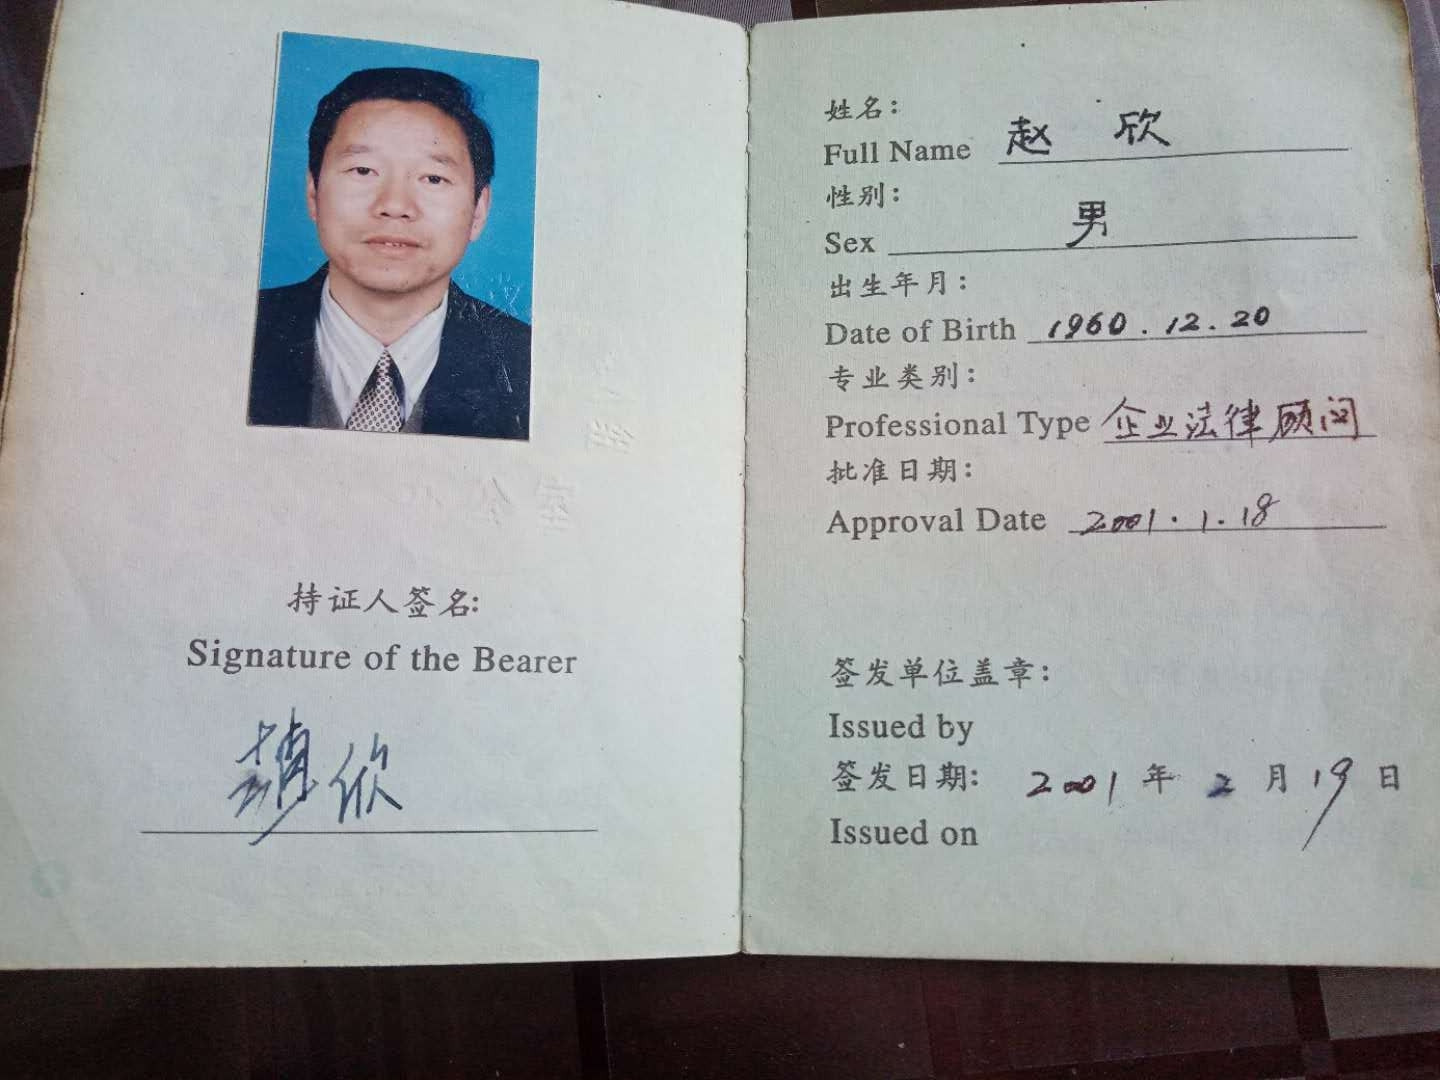 持证人签名:
Signature of the Bearer
赵欣
姓名:
Full Name 赵欣
性别:
Sex 男
出生年月:
Date of Birth 1960.12.20
专业类别:
Professional Type 企业法律顾问
批准日期:
Approval Date 2001.1.18
签发单位盖章:
Issued by
签发日期: 2001年2月19日
Issued on